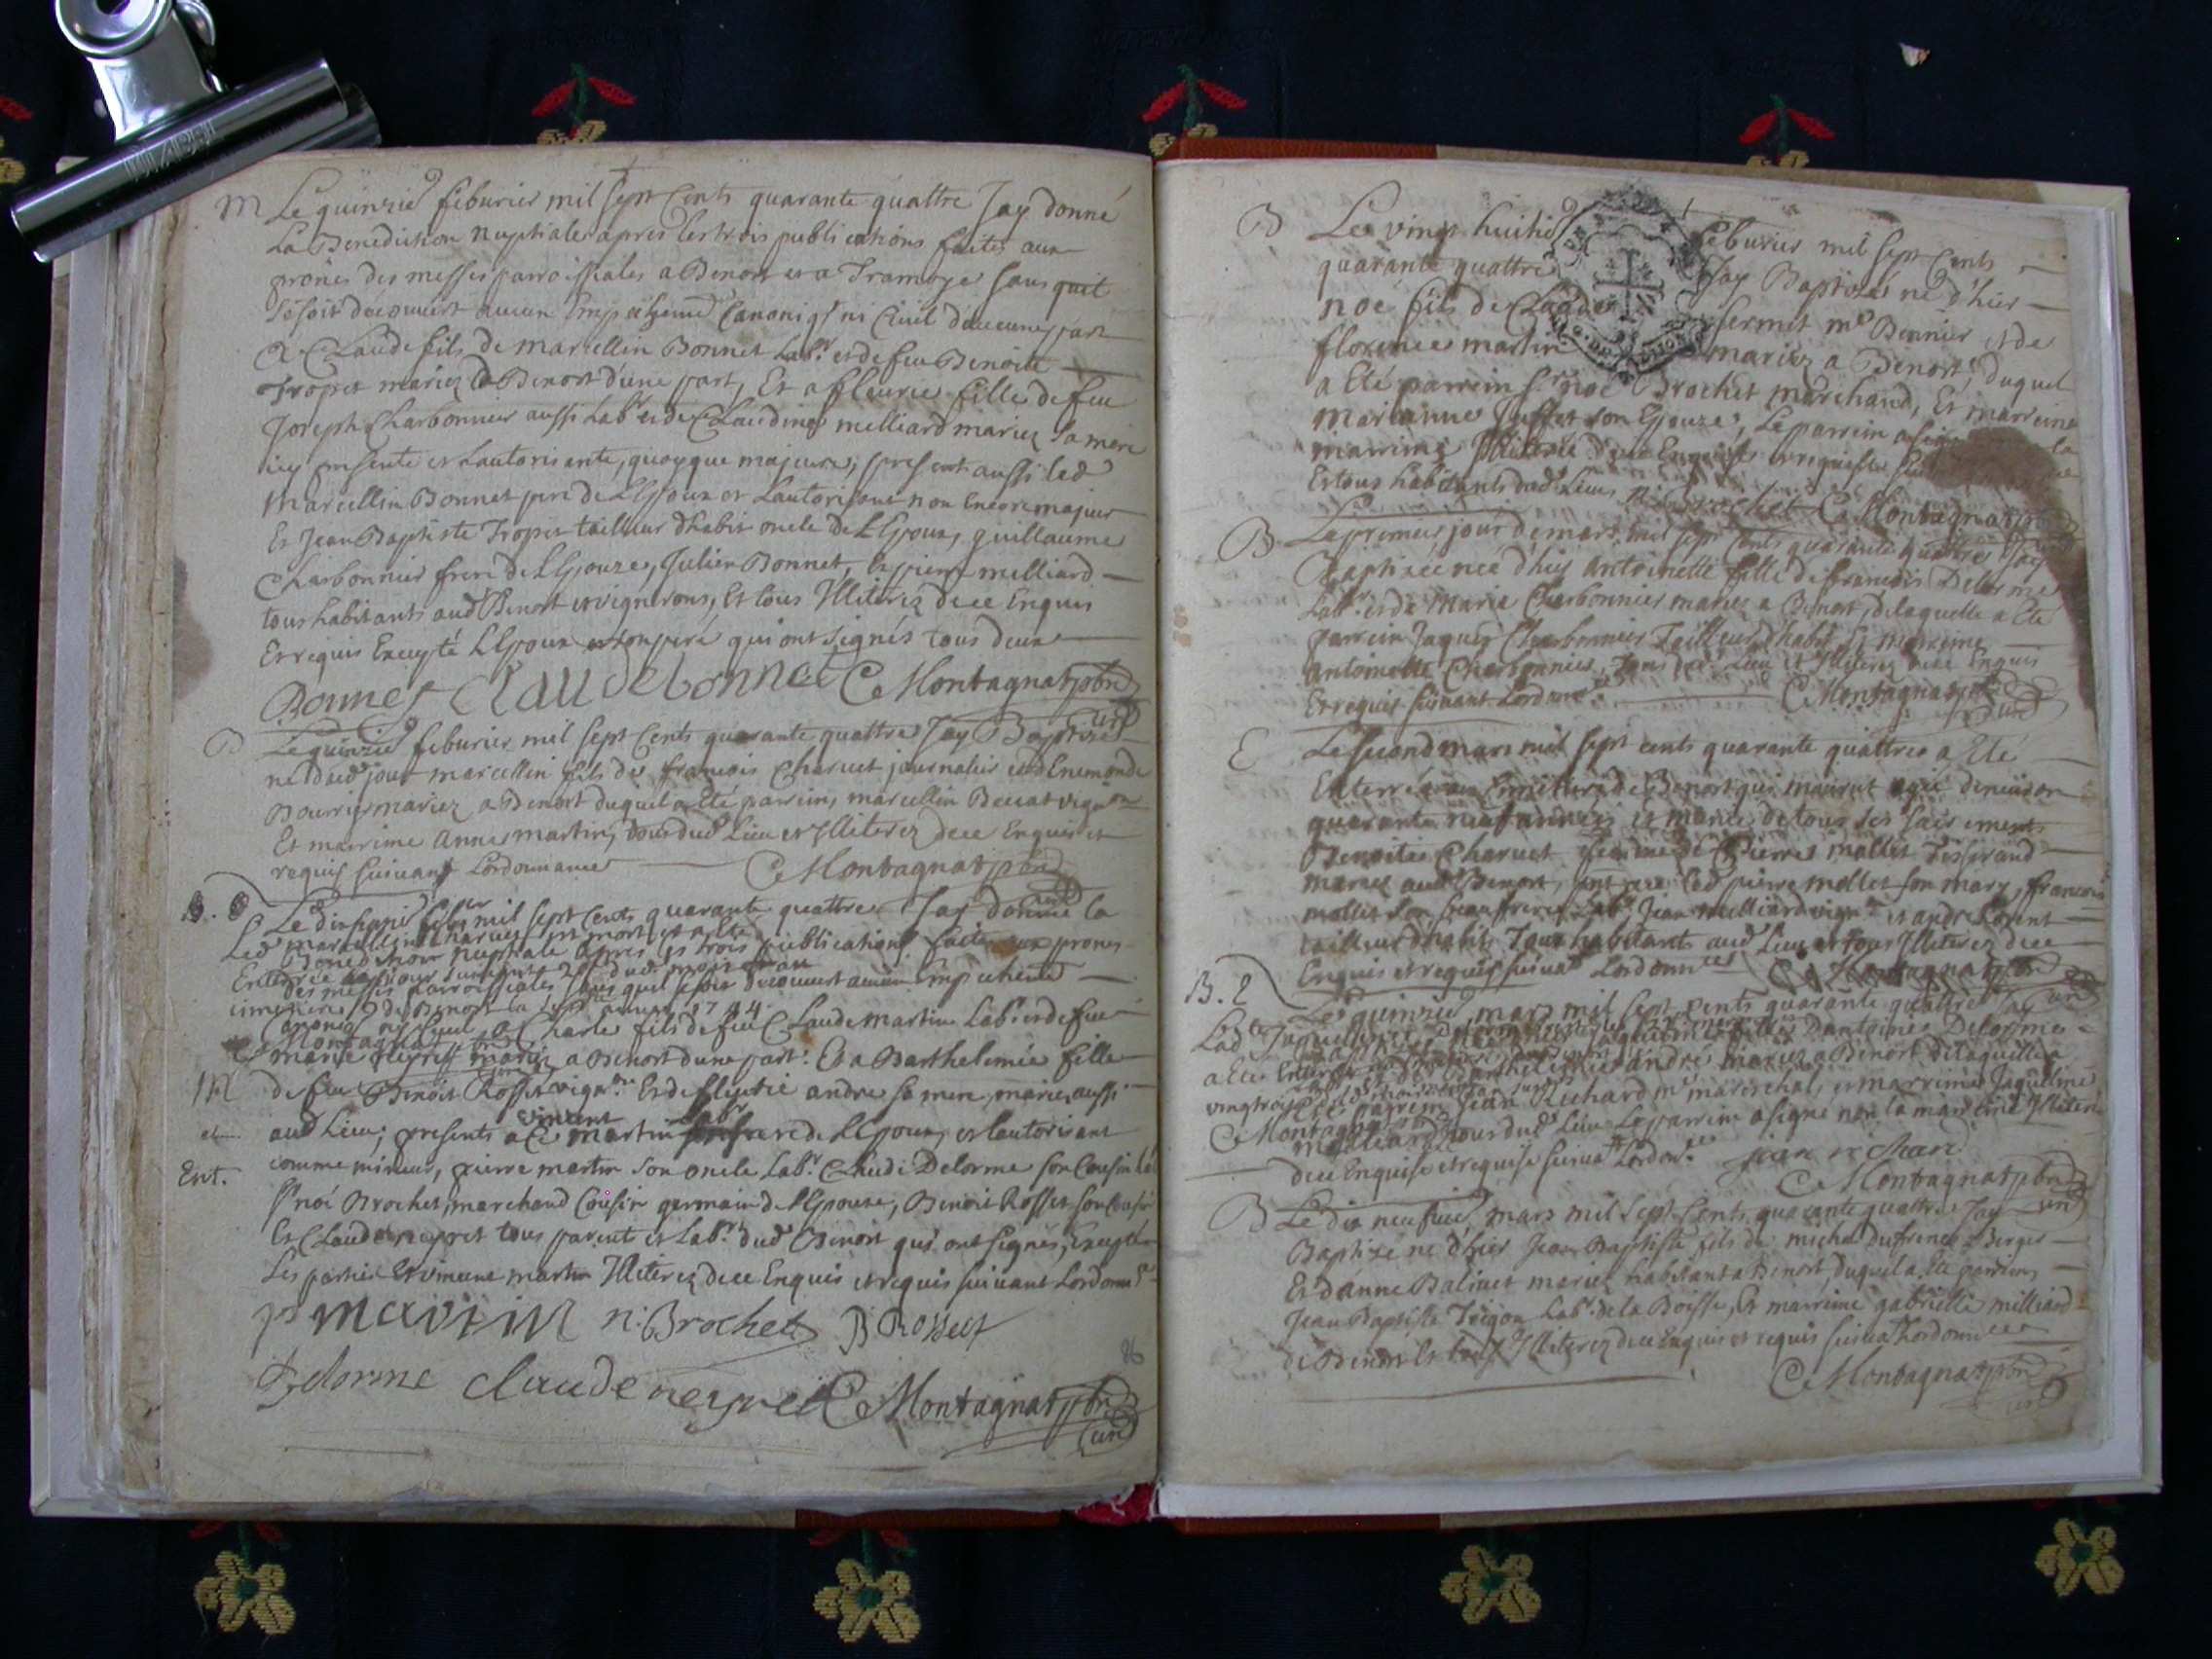 M Le quinzie feburier mil sept Cents quarante quattre Jay donné
La Benediction nuptiale apres les trois publications faites aux
prônes des messes parroissiales a Benost et a Tramoye sans quil
se soit decouvert aucun Empechemt Canoniq ni Civil daucune part
a Claude fils de marcellin Bonnet Labr et de feu Benoite
Tropet mariez a Benost dune part, Et a fleurie fille de feu
Joseph Charbonnier aussi Labr et de Claudine milliard mariez sa mere
icy presente et Lautorisante, quoyque majeure, present aussi led
Marcellin Bonnet pere de LEpoux et Lautorisant non Encore majeur
Et Jean Baptiste Tropet tailleur dhabit oncle de LEpoux, guillaume
Charbonnier frere de LEpouze, Julien Bonnet, et pierre milliard
tous habitants aud Benost et vignerons, Et tous Illiterez de ce Enquis
Et requis Excepté LEpoux et son peré qui ont signés tous deux
Bonnet Claude bonnet C Montagnat pbre
curé
B Le quinzie feburier mil sept Cents quarante quattre Jay Baptisé
né dud jour marcellin fils de francois Charvet journalier et dEnemonde
Bourrier mariez a Benost duquel a Eté parrein, marcellin Beccat vigron
Et marreine anne martin, tous dud Lieu et Illiterez de ce Enquis et
requis suivant Lordonnance C Montagnat pbre
curé
B. E Le dixseptie febr mil sept Cents quarante quattre Jay donné la
Led marcellin Charvet est mort et a Eté
Benediction nuptiale apres les trois publications faites aux prones
Enterré
des messes parroissiales sans quil se soit decouvert aucun Empechemt
cimetiere de Benost
1744
Canoniq ny Civil a Charle fils de feu Claude martin Labr et de feue
C Montagnat pbre
marie neyret mariez a Benost dune part. Et a Barthelemie fille
M de feu Benoit Rosset vigron Et de fleurie andré sa mere, mariez aussi
et aud Lieu, presents a ce vincent martin Labr frere de LEpoux, et lautorisant
Ent. comme mineur, pierre martin son oncle Labr Claude Delorme son Cousin
Sr noé Brochet, marchand Cousin germain de LEpouse, Benoit Rosset son Cousin
Et Claude neyret tous parents et Labrs dud Benost qui ont signés, Excepté
Les parties Et vincent martin Illiterez de ce Enquis et requis suivant Lordonnce
p martin n: Brochet B Rosset
Delorme claude neyret C Montagnat pbre
curé
B Le vingt huitie feburier mil sept Cents
quarante quattre Jay Baptisé né d'hier
noé fils de Claude fermet me Bennier et de
florence martin mariez a Benost, duquel
a Eté parrein Sr noé Brochet marchand, Et marreine
marianne son Epouze, Le parrein a signé
marreine Illiterée de ce Enquise et requise
Et tous habitants dud Lieu n: Brochet C Montagnat pbre
B Le premier jour de mars mil sept Cents quarante quattre Jay
Baptisée née d'huy antoinette fille de francois Delorme
Labr et de Marie Charbonnier mariez a Benost, de laquelle a Eté
parrein Jaques Charbonnier Tailleur d'habit Et marreine
antoinette Charbonnier, Tous dud Lieu et Illiterez de ce Enquis
Et requis suivant Lordonce C Montagnat pbre
curé
E Le second mars mil sept cents quarante quattre a Eté
Enterrée au Cimetiere de Benost qui mourut agée denviron
quarante neuf années et munie de tous ses sacrements
Benoitte Charvet femme de Pierre mollet Tisserand
mariez aud Benost, present led pierre mollet son mary, francois
mollet son beaufrere Labr Jean milliard vigron et andré Lorent
tailleur dhabits Tous habitants aud Lieu et tous Illiterez de ce
Enquis et requis suivat Lordonnces C Montagnat pbre
curé
B. E Le quinzie mars mil sept cents quarante quattre Jay
Lad Jaqueline Delorme
Jaqueline fille Dantoine Delorme
a Eté Enterrée
Barthelemie andré mariez a Benost de laquelle a
vingtrois
Eté parrein Jean Richard me mareschal, et marreine Jaqueline
C Montagnat
milliard, tous dud Lieu Le parrein a signé non la marreine Illiterée
de ce Enquise et requise suivat Lordonce jean richard
C Montagnat pbre
curé
B Le dix neufvie mars mil sept Cents quarante quattre Jay
Baptisé né d'hier Jean Baptiste fils de michel dufrene Berger
Et danne Balivet mariez habitant a Benost, duquel a Eté parrein
Jean Baptiste Trigon Labr de la Boisse, Et marreine gabrielle milliard
de Benost Et tous Illiterez de ce Enquis et requis suivat Lordonnce
C Montagnat pbre
curé